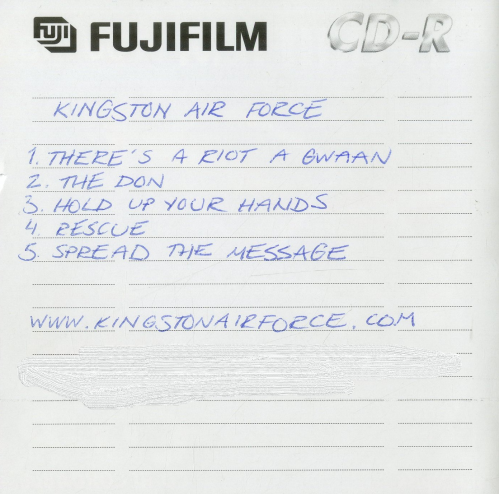 FUJI FUJIFILM CD-R
KINGSTON AIR FORCE
1. THERE'S A RIOT A GWAAN
2. THE DON
3. HOLD UP YOUR HANDS
4 RESCUE
5. SPREAD THE MESSAGE
WWW.KINGSTONAIRFORCE.COM